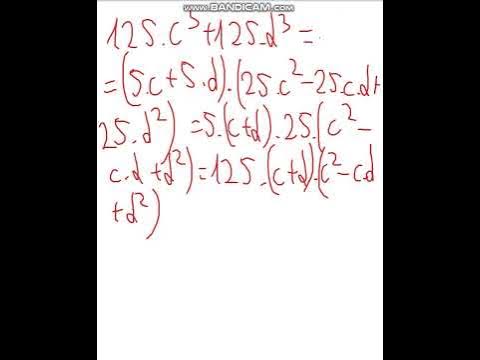 WWW.BANDICAM.COM
125.c³+125.d³=
=(5.c+5.d).(25.c²-25.c.d+
25.d²)=5.(c+d).25.(c²-
c.d+d²)=125.(c+d).(c²-c.d
+d²)